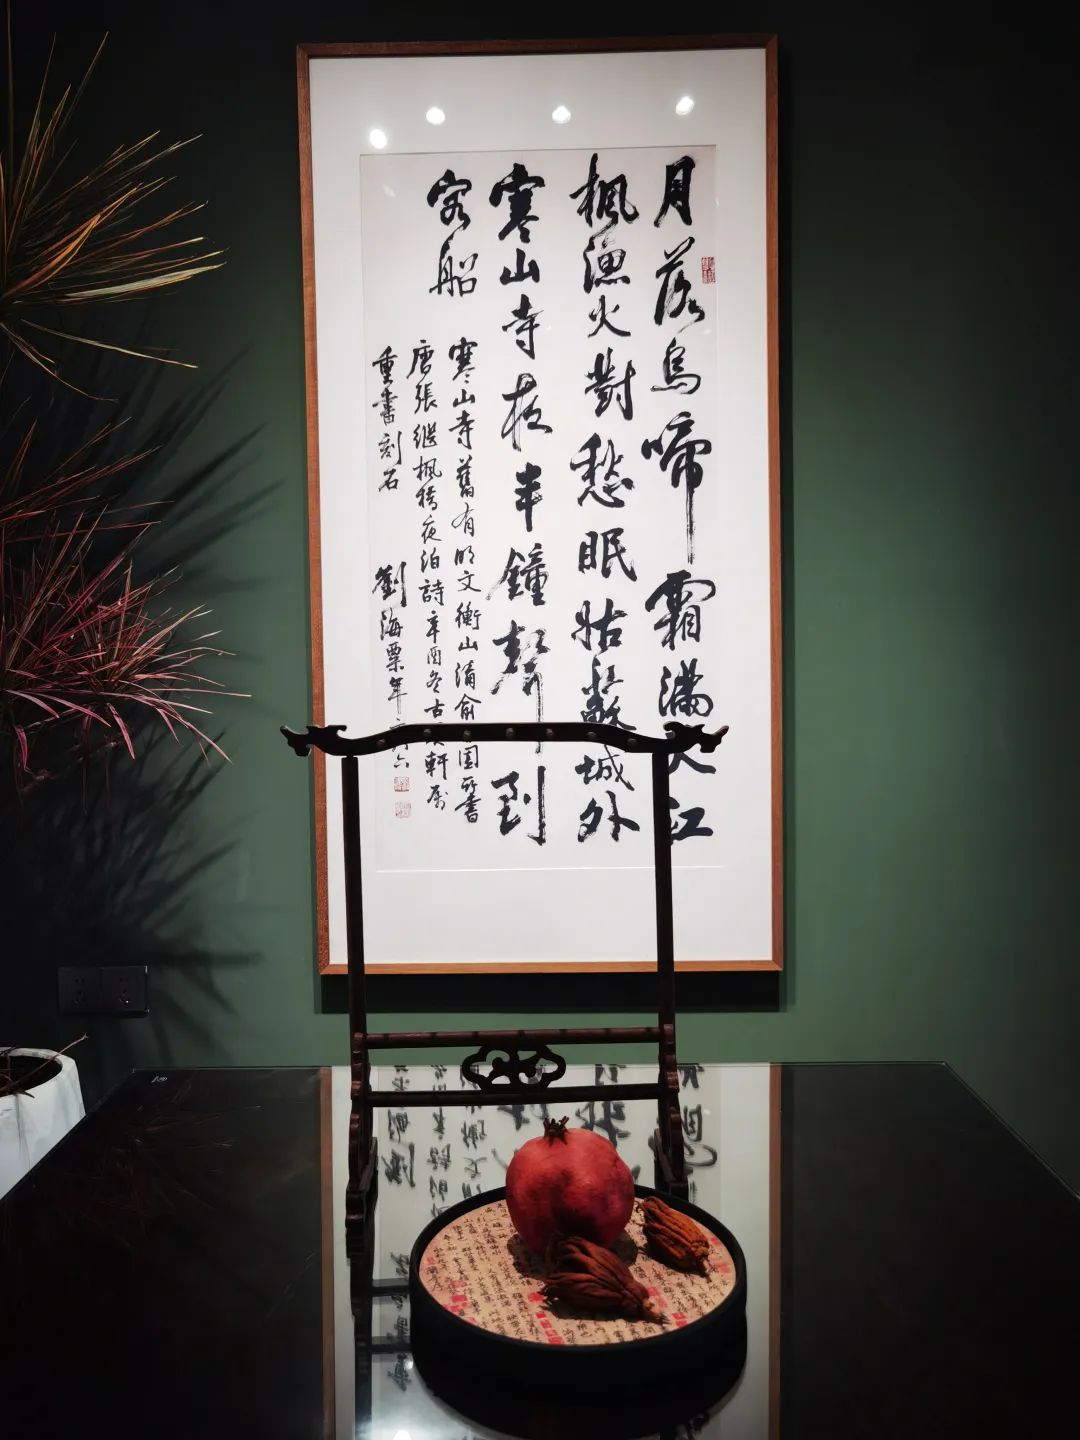 月落烏啼霜滿天江
楓漁火對愁眠姑蘇城外
寒山寺夜半鐘聲到
客船
寒山寺舊有明文衡山清俞園所書
唐張繼楓橋夜泊詩辛酉冬古軒屬
重書刻石
劉海粟年六